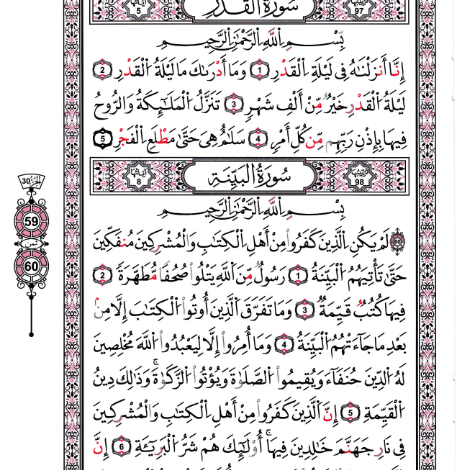 سُورَةُ الْقَدْرِ
97
5
بِسْمِ اللَّهِ الرَّحْمَٰنِ الرَّحِيمِ
إِنَّا أَنزَلْنَاهُ فِي لَيْلَةِ الْقَدْرِ 1 وَمَا أَدْرَاكَ مَا لَيْلَةُ الْقَدْرِ 2
لَيْلَةُ الْقَدْرِ خَيْرٌ مِّنْ أَلْفِ شَهْرٍ 3 تَنَزَّلُ الْمَلَٰٓئِكَةُ وَالرُّوحُ
فِيهَا بِإِذْنِ رَبِّهِم مِّن كُلِّ أَمْرٍ 4 سَلَٰمٌ هِيَ حَتَّىٰ مَطْلَعِ الْفَجْرِ 5
سُورَةُ الْبَيِّنَةِ
98
8
بِسْمِ اللَّهِ الرَّحْمَٰنِ الرَّحِيمِ
لَمْ يَكُنِ الَّذِينَ كَفَرُوا مِنْ أَهْلِ الْكِتَٰبِ وَالْمُشْرِكِينَ مُنفَكِّينَ
حَتَّىٰ تَأْتِيَهُمُ الْبَيِّنَةُ 1 رَسُولٌ مِّنَ اللَّهِ يَتْلُوا صُحُفًا مُّطَهَّرَةً 2
فِيهَا كُتُبٌ قَيِّمَةٌ 3 وَمَا تَفَرَّقَ الَّذِينَ أُوتُوا الْكِتَٰبَ إِلَّا مِن
بَعْدِ مَا جَاءَتْهُمُ الْبَيِّنَةُ 4 وَمَا أُمِرُوا إِلَّا لِيَعْبُدُوا اللَّهَ مُخْلِصِينَ
لَهُ الدِّينَ حُنَفَاءَ وَيُقِيمُوا الصَّلَوٰةَ وَيُؤْتُوا الزَّكَوٰةَ ۚ وَذَٰلِكَ دِينُ
الْقَيِّمَةِ 5 إِنَّ الَّذِينَ كَفَرُوا مِنْ أَهْلِ الْكِتَٰبِ وَالْمُشْرِكِينَ
فِي نَارِ جَهَنَّمَ خَٰلِدِينَ فِيهَا ۚ أُولَٰٓئِكَ هُمْ شَرُّ الْبَرِيَّةِ 6 إِنَّ
59
60